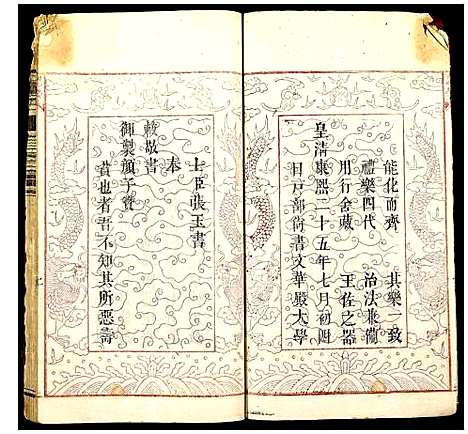 能化而齊 其樂一致
禮樂四代 治法兼備
用行舍藏 王佐之器
皇清康熙二十五年七月初
日戶部尚書文華殿大學
士臣張玉書
奉
敕敬書
御製顏子贊
也者吾不知其所惡壽